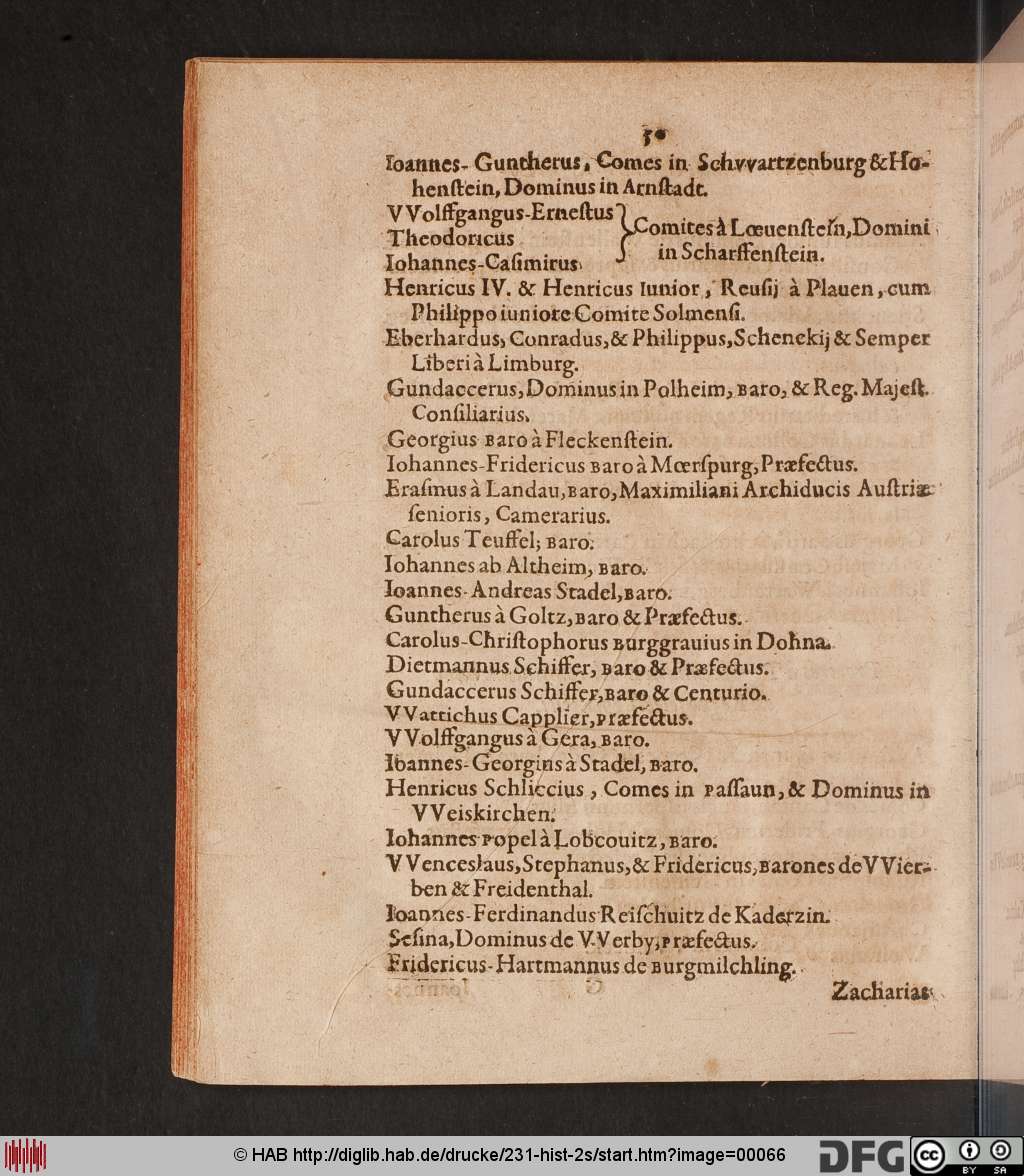 50
Ioannes-Guntherus, Comes in Schvvartzenburg & Ho-
henſtein, Dominus in Arnſtadt.
VVolffgangus-Erneſtus
Theodoricus
Iohannes-Caſimirus
Comites à Lœuenſtein, Domini
in Scharffenſtein.
Henricus IV. & Henricus Iunior, Reuſij à Plauen, cum
Philippo iuniore Comite Solmenſi.
Eberhardus, Conradus, & Philippus, Schenckij & Semper
Liberi à Limburg.
Gundaccerus, Dominus in Polheim, Baro, & Reg. Majeſt.
Conſiliarius.
Georgius Baro à Fleckenſtein.
Iohannes-Fridericus Baro à Mœrſpurg, Præfectus.
Eraſmus à Landau, Baro, Maximiliani Archiducis Auſtriæ
ſenioris, Camerarius.
Carolus Teuffel, Baro.
Iohannes ab Altheim, Baro.
Ioannes-Andreas Stadel, Baro.
Guntherus à Goltz, Baro & Præfectus.
Carolus-Chriſtophorus Burggrauius in Dohna.
Dietmannus Schiffer, Baro & Præfectus.
Gundaccerus Schiffer, Baro & Centurio.
VVattichus Capplier, Præfectus.
VVolffgangus à Gera, Baro.
Ioannes-Georgius à Stadel, Baro.
Henricus Schliccius, Comes in Paſſaun, & Dominus in
VVeiskirchen.
Iohannes Popel à Lobcouitz, Baro.
VVenceslaus, Stephanus, & Fridericus, Barones de VVier-
ben & Freidenthal.
Ioannes-Ferdinandus Reiſchuitz de Kaderzin.
Seſina, Dominus de VVerby, Præfectus.
Fridericus-Hartmannus de Burgmilchling.
Zacharias
© HAB http://diglib.hab.de/drucke/231-hist-2s/start.htm?image=00066
DFG
cc
BY SA